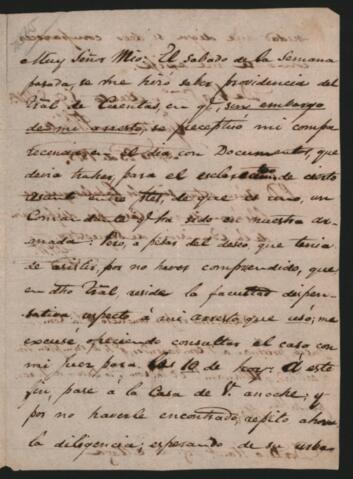 Muy Señor Mio: El Sabado de la Semana
pasada, se me hizó saber providencia del
Tral de Cuentas, en qe, sin embargo
de mi arresto, se preceptuó mi compa
recencia en el dia, con Documentos, que
devia haber, para el esclarecimto de cierto
Asunto entre Ptes, de que es uno, un
Comandante qe ha sido en nuestra ar-
mada: Pero, a pesar del deseo, que tenia
de asistir, por no haver comprendido, que
en dho Tral, reside la facultad dispen-
sativa respecto à mi arresto que uso; me
escusé ofreciendo consultar el caso con
mi juez para las 10 de hoy. A este
fin, pasé a la Casa de V. anoche; y
por no haverle encontrado, repito ahora
la diligencia; esperando de su urba-